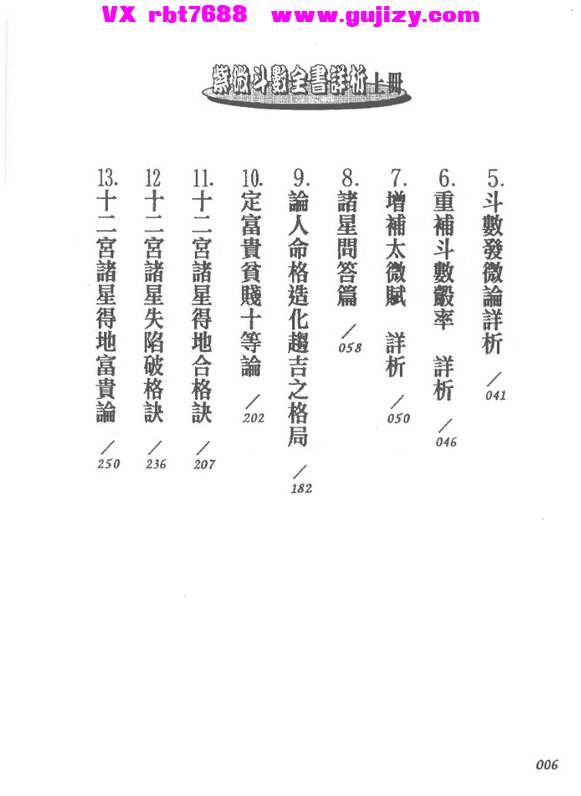 VX rbt7688 www.gujizy.com
紫微斗數全書詳析上冊
5.斗數發微論詳析／041
6.重補斗數彀率 詳析／046
7.增補太微賦 詳析／050
8.諸星問答篇／058
9.論人命格造化趨吉之格局／182
10.定富貴貧賤十等論／202
11.十二宮諸星得地合格訣／207
12十二宮諸星失陷破格訣／236
13.十二宮諸星得地富貴論／250
006